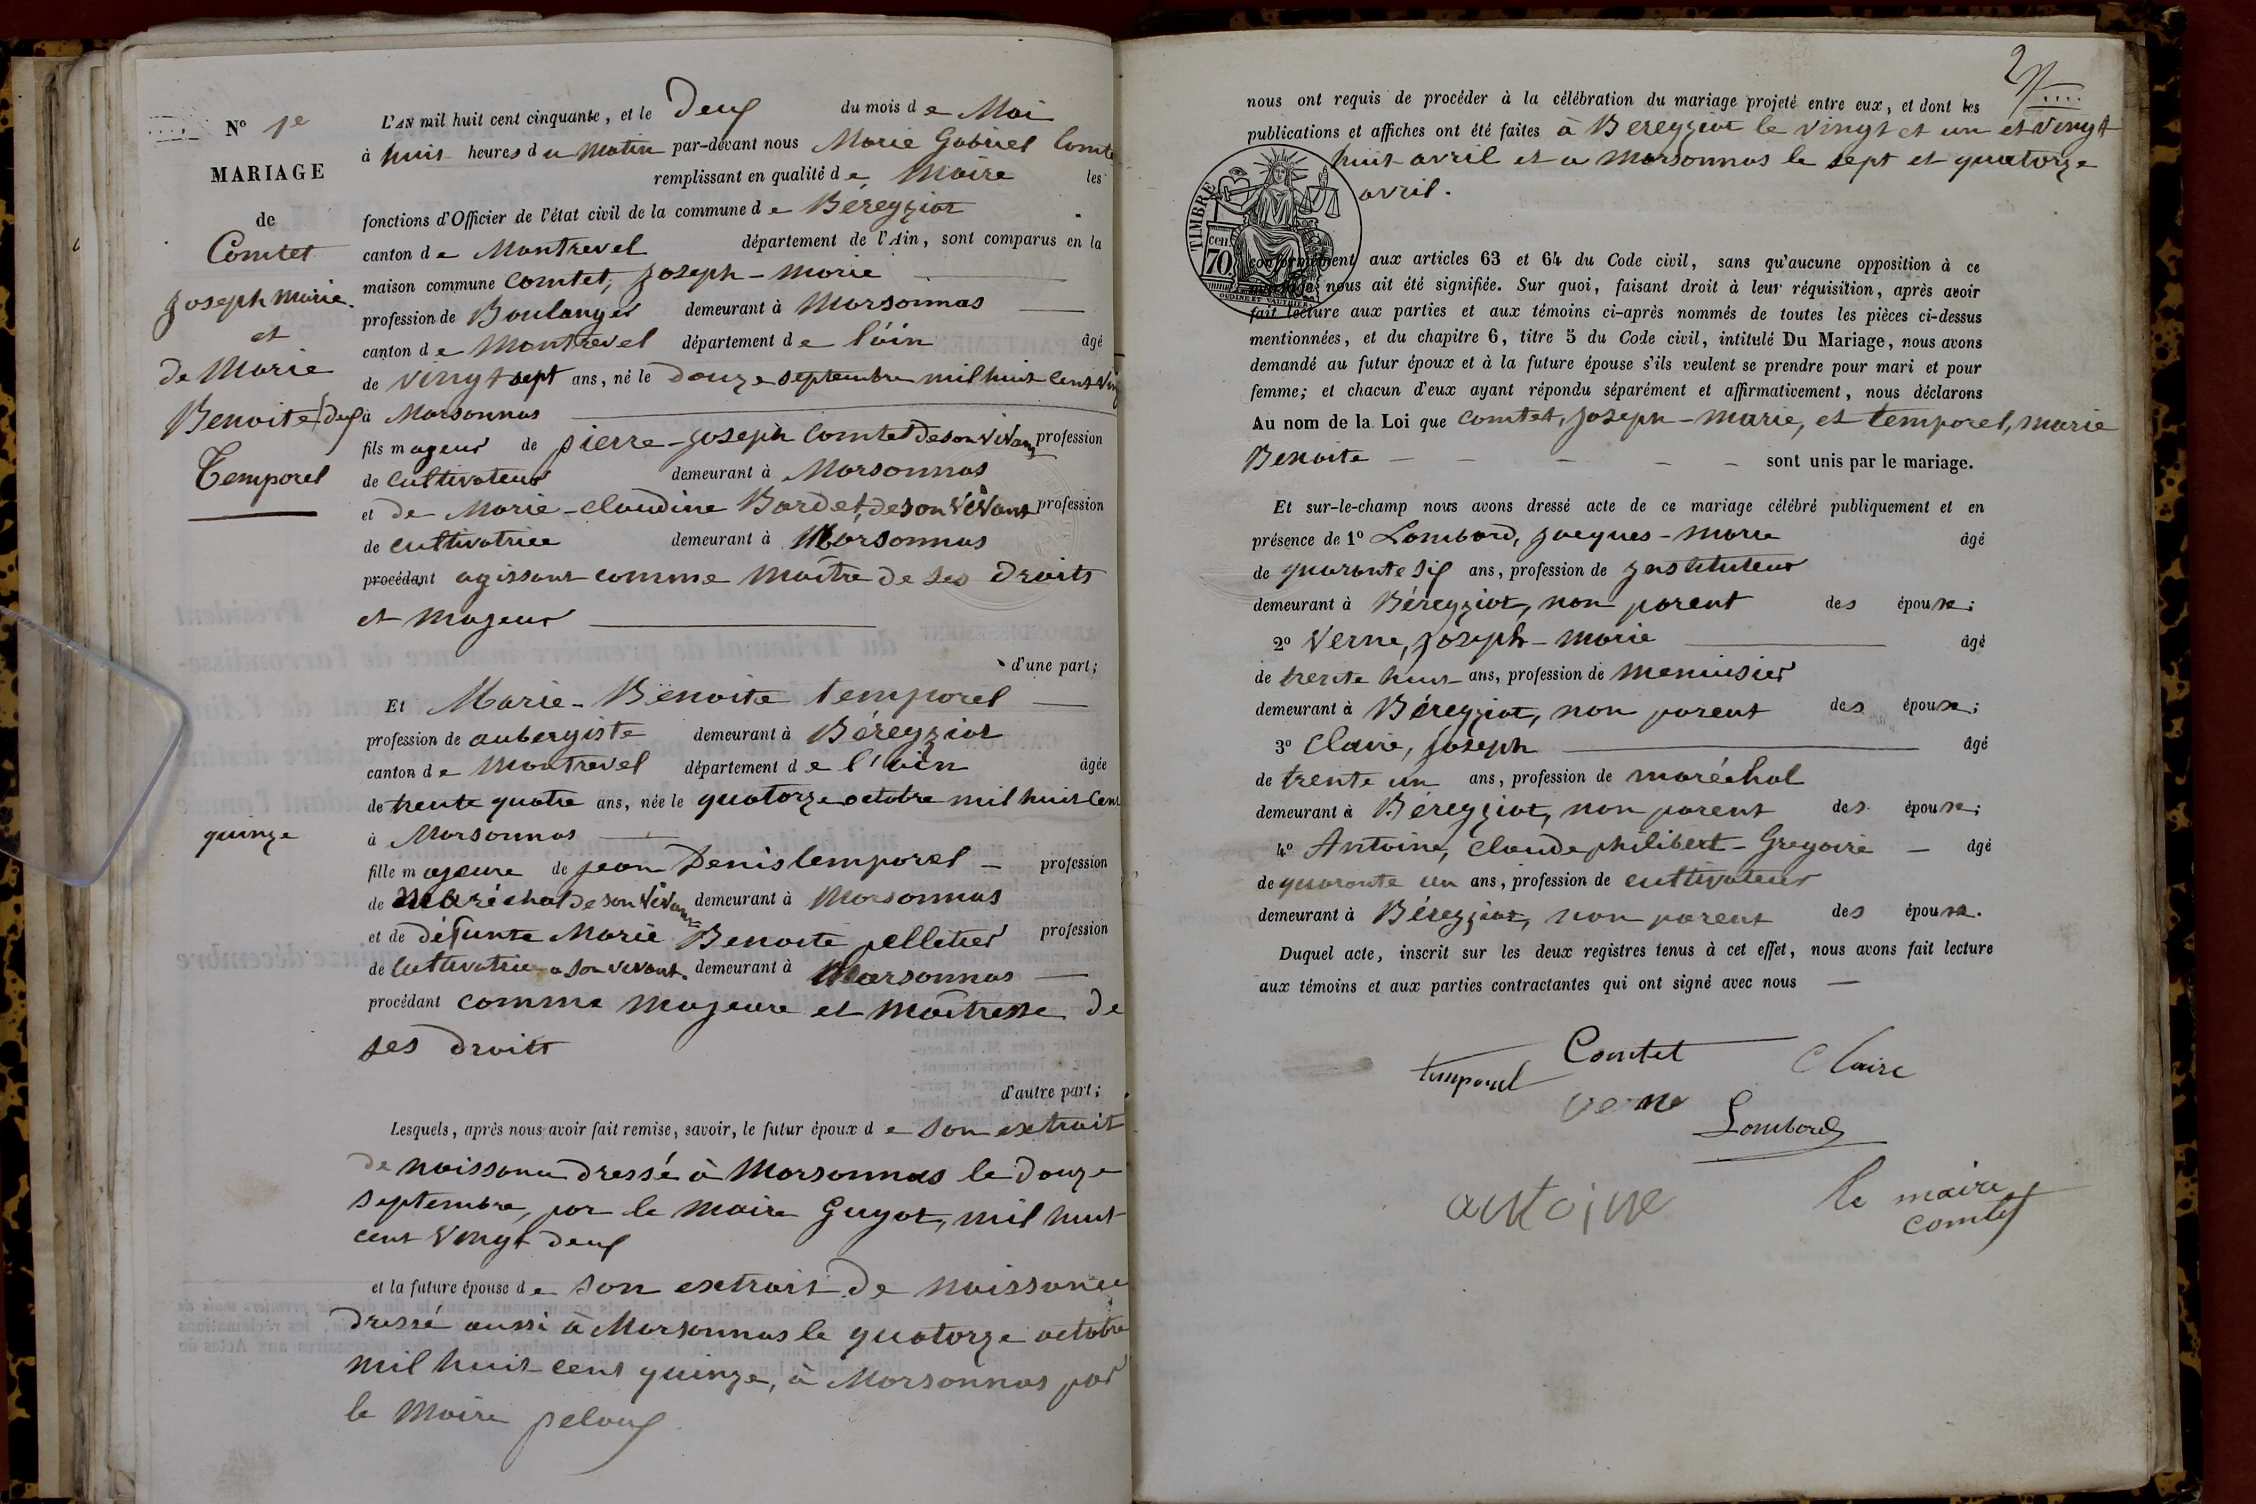 N° 1e
MARIAGE
de
Comtet
Joseph Marie
et
de Marie
Benoite
Temporel
L'AN mil huit cent cinquante, et le Deux du mois de Mai
à huit heures du Matin par-devant nous Marie Gabriel Comte
remplissant en qualité de Maire les
fonctions d'Officier de l'état civil de la commune de Béreyziat
canton de Montrevel département de l'Ain, sont comparus en la
maison commune Comtet, Joseph-Marie
profession de Boulanger demeurant à Marsonnas
canton de Montrevel département de l'ain âgé
de vingt sept ans, né le Douze septembre mil huit Cent Ving
deux à Marsonnas
fils mageur de pierre-Joseph Comtet de son vivant profession
de Cultivateur demeurant à Marsonnas
et de Marie-Claudine Bardet, de son vivant profession
de cultivatrice demeurant à Marsonnas
procédant agissant comme Maître de ses Droits
et Mageur
d'une part;
Et Marie-Benoite temporel
profession de aubergiste demeurant à Béreyziat
canton de Montrevel département de l'ain âgée
de trente quatre ans, née le quatorze octobre mil huit Cent
quinze à Marsonnas
fille mageure de Jean Denis temporel profession
de Maréchal de son vivant demeurant à Marsonnas
et de défunte Marie Benoite pelletier profession
de Cultivatrice a son vivant demeurant à Marsonnas
procédant comme mageure et maîtresse de
ses Droits
d'autre part;
Lesquels, après nous avoir fait remise, savoir, le futur époux de son extrait
de naissance Dressé à Marsonnas le Douze
septembre, par le Maire Guyot, mil huit
cent Vingt Deux
et la future épouse de son extrait De naissance
Dressé aussi à Marsonnas le quatorze octobre
mil huit cent quinze, à Marsonnas par
le Maire peloux
nous ont requis de procéder à la célébration du mariage projeté entre eux, et dont les
publications et affiches ont été faites à Béreyziat le vingt et un et vingt
huit avril et a Marsonnas le sept et quatorze
avril.
TIMBRE
70 cen
OUDINÉ ET VAUTHIER
conformément aux articles 63 et 64 du Code civil, sans qu'aucune opposition à ce
mariage nous ait été signifiée. Sur quoi, faisant droit à leur réquisition, après avoir
fait lecture aux parties et aux témoins ci-après nommés de toutes les pièces ci-dessus
mentionnées, et du chapitre 6, titre 5 du Code civil, intitulé Du Mariage, nous avons
demandé au futur époux et à la future épouse s'ils veulent se prendre pour mari et pour
femme; et chacun d'eux ayant répondu séparément et affirmativement, nous déclarons
Au nom de la Loi que Comtet, Joseph-Marie, et temporel, Marie
Benoite sont unis par le mariage.
Et sur-le-champ nous avons dressé acte de ce mariage célébré publiquement et en
présence de 1° Lombard, Jacques-Marie âgé
de quarante six ans, profession de Instituteur
demeurant à Béreyziat, non parent des époux;
2° Verne, Joseph-Marie âgé
de trente huit ans, profession de Menuisier
demeurant à Béreyziat, non parent des époux;
3° Claire, Joseph âgé
de trente un ans, profession de maréchal
demeurant à Béreyziat, non parent des époux;
4° Antoine, Claude philibert-Gregoire âgé
de quarante un ans, profession de cultivateur
demeurant à Béreyziat, non parent des époux.
Duquel acte, inscrit sur les deux registres tenus à cet effet, nous avons fait lecture
aux témoins et aux parties contractantes qui ont signé avec nous
Comtet Claire
temporel
Verne
Lombard
antoine
le maire
comtet